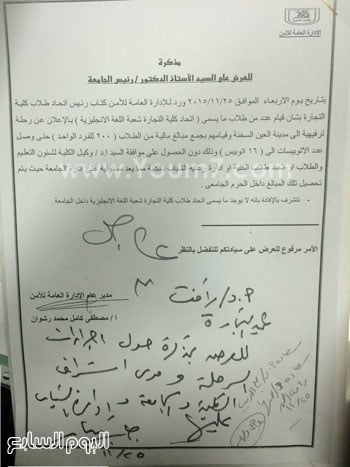 الإدارة العامة للأمن
مذكرة
للعرض على السيد الأستاذ الدكتور / رئيس الجامعة
بتاريخ يوم الاربعاء الموافق ٢٠١٥/١١/٢٥ ورد للإدارة العامة للأمن كتاب رئيس اتحاد طلاب كلية
التجارة بشأن قيام عدد من طلاب ما يسمى ( اتحاد كلية التجارة شعبة اللغة الإنجليزية ) بالإعلان عن رحلة
ترفيهية الى مدينة العين السخنة وقيامهم بجمع مبالغ مالية من الطلاب ( ٢٠٠ للفرد الواحد ) حتى وصل
عدد الاتوبيسات الى ( ١٦ اتوبيس ) وذلك دون الحصول على موافقة السيد ا.د / وكيل الكلية لشئون التعليم
والطلاب او اتحاد طلاب الكلية او ادارة رعاية الشباب بالكلية مما يعد مسئولية على ادارة الجامعة حيث يتم
تحصيل تلك المبالغ داخل الحرم الجامعي .
نتشرف بالإفادة بانه لا يوجد ما يسمى اتحاد طلاب كلية التجارة شعبة اللغة الإنجليزية داخل الجامعة .
www.Youm7.com
الأمر مرفوع للعرض على سيادتكم للتفضل بالنظر
عاجل
مدير عام الإدارة العامة للأمن
أ / مصطفى كامل محمد رشوان
ا.د/ رأفت
عميد التجارة
للعرض بمذكرة حول اجراءات
الرحلة ومدى اشراف
الكلية والجامعة وإدارة الشباب
عليها
١١/٢٥
اليوم السابع